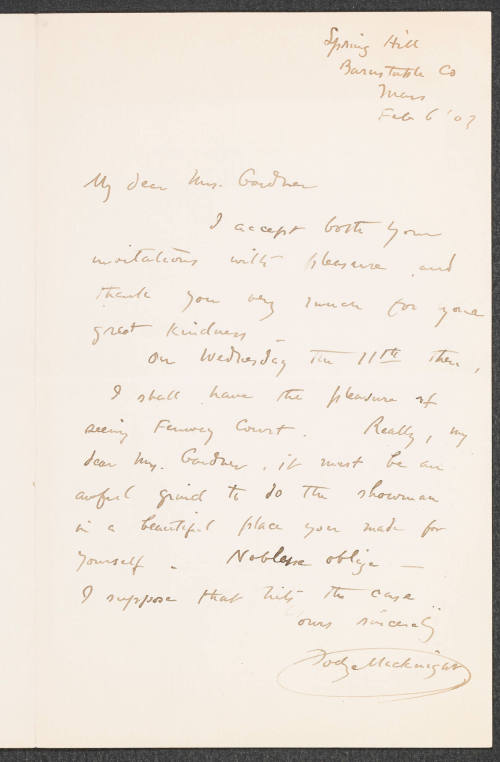 Spring Hill
Barnstable Co
Mass
Feb 6 '03
My dear Mrs. Gardner
I accept both your
invitations with pleasure and
thank you very much for your
great kindness _
On Wednesday the 11th then,
I shall have the pleasure of
seeing Fenway Court. Really, my
dear Mrs. Gardner, it must be an
awful grind to do the showman
in a beautiful place you made for
yourself. Noblesse oblige —
I suppose that hits the case ..
Yours sincerely
Dodge Macknight